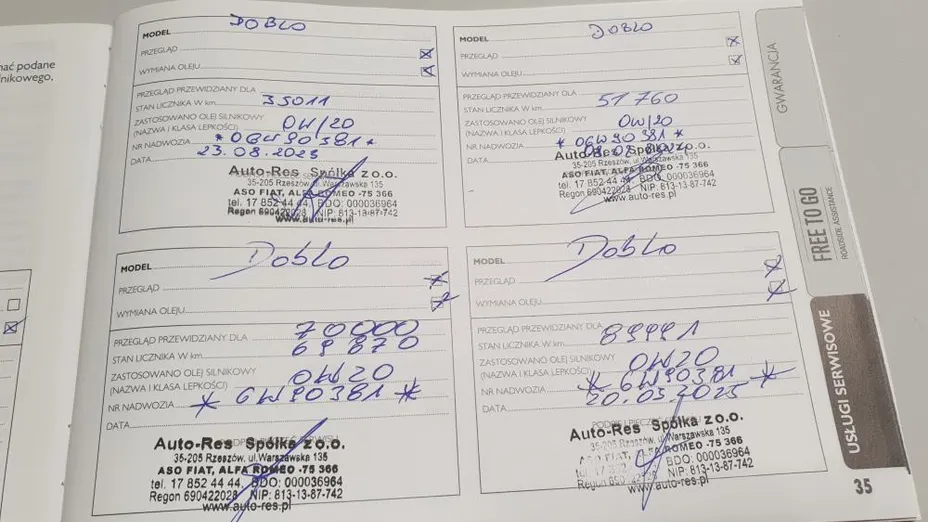 nać podane
nikowego,
MODEL DOBLO
PRZEGLĄD
WYMIANA OLEJU
PRZEGLĄD PRZEWIDZIANY DLA
STAN LICZNIKA W km 35011
ZASTOSOWANO OLEJ SILNIKOWY
(NAZWA I KLASA LEPKOŚCI) 0W/20
NR NADWOZIA * 06W90381 *
DATA 23.08.2023
Auto-Res Spółka z o.o.
35-205 Rzeszów, ul. Warszawska 135
ASO FIAT, ALFA ROMEO -75 366
tel. 17 852 44 44, BDO: 000036964
Regon 690422028 NIP: 813-13-87-742
www.auto-res.pl
MODEL DOBLO
PRZEGLĄD
WYMIANA OLEJU
PRZEGLĄD PRZEWIDZIANY DLA
STAN LICZNIKA W km 51760
ZASTOSOWANO OLEJ SILNIKOWY
(NAZWA I KLASA LEPKOŚCI) 0W/20
NR NADWOZIA * 06W90381 *
DATA
Auto-Res Spółka z o.o.
35-205 Rzeszów, ul. Warszawska 135
ASO FIAT, ALFA ROMEO -75 366
tel. 17 852 44 44, BDO: 000036964
Regon 690422028 NIP: 813-13-87-742
www.auto-res.pl
MODEL Doblo
PRZEGLĄD
WYMIANA OLEJU
PRZEGLĄD PRZEWIDZIANY DLA 70000
STAN LICZNIKA W km 69870
ZASTOSOWANO OLEJ SILNIKOWY
(NAZWA I KLASA LEPKOŚCI) 0W20
NR NADWOZIA * 6W90381 *
DATA
Auto-Res Spółka z o.o.
35-205 Rzeszów, ul. Warszawska 135
ASO FIAT, ALFA ROMEO -75 366
tel. 17 852 44 44, BDO: 000036964
Regon 690422028 NIP: 813-13-87-742
www.auto-res.pl
MODEL Doblo
PRZEGLĄD
WYMIANA OLEJU
PRZEGLĄD PRZEWIDZIANY DLA
STAN LICZNIKA W km 89991
ZASTOSOWANO OLEJ SILNIKOWY
(NAZWA I KLASA LEPKOŚCI) 0W20
NR NADWOZIA * 6W90381 *
DATA 20.05.2025
Auto-Res Spółka z o.o.
35-205 Rzeszów, ul. Warszawska 135
ASO FIAT, ALFA ROMEO -75 366
tel. 17 852 44 44, BDO: 000036964
Regon 690422028 NIP: 813-13-87-742
www.auto-res.pl
GWARANCJA
FREE TO GO
ROADSIDE ASSISTANCE
USŁUGI SERWISOWE
35